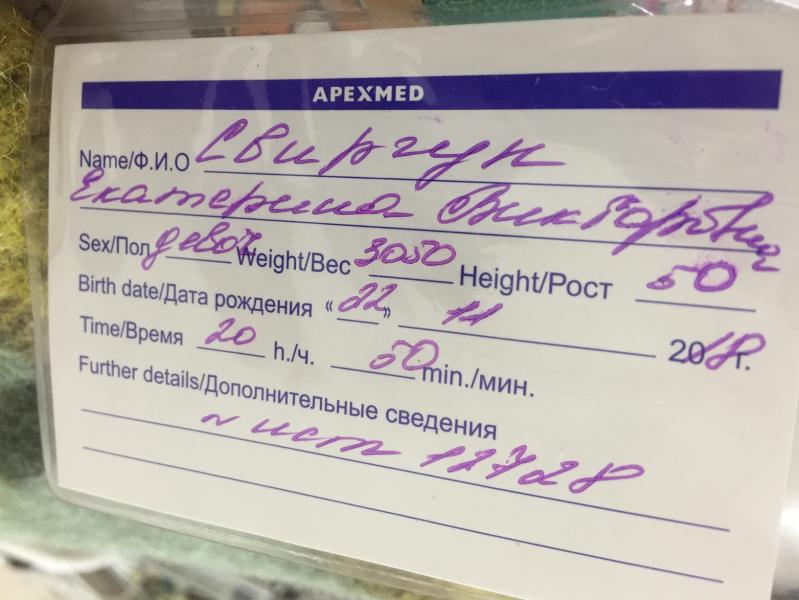 APEXMED
Name/Ф.И.О Свиргун
Екатерина Викторовна
Sex/Пол девоч Weight/Вес 3050 Height/Рост 50
Birth date/Дата рождения «22» 11 2018 г.
Time/Время 20 h./ч. 50 min./мин.
Further details/Дополнительные сведения
N ист 12728